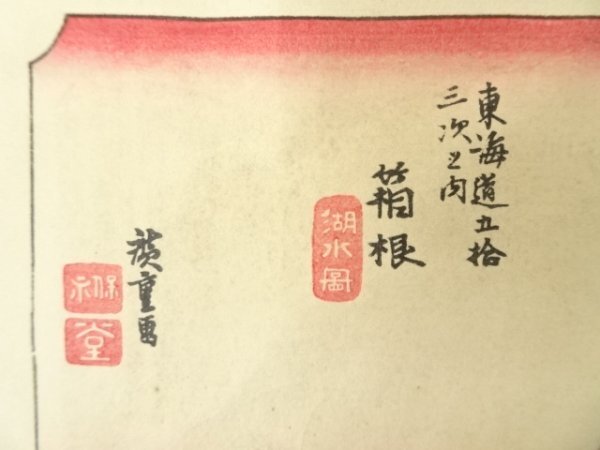 東海道五拾
三次之内
箱根
湖水圖
廣重画
保
永
堂